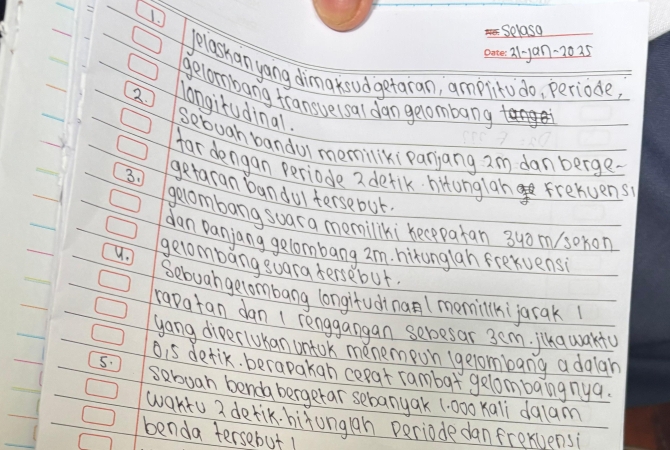 Selasa
Date: 21-jan-2025
1. jelaskan yang dimaksud getaran, amplitudo, Periode,
gelombang transversal dan gelombang
longitudinal.
2. Sebuah bandul memiliki Panjang 2m dan berge-
tar dengan Periode 2 detik. hitunglah Frekuensi
getaran bandul tersebut.
3. gelombang suara memiliki kecepatan 340 m/sekon
dan Panjang gelombang 2m. hitunglah Frekuensi
gelombang suara tersebut.
4. Sebuah gelombang longitudinal memiliki jarak 1
rapatan dan 1 renggangan sebesar 3cm. jika waktu
yang diperlukan untuk menempuh 1 gelombang adalah
0,5 detik. berapakah cepat rambat gelombangnya.
5. Sebuah benda bergetar sebanyak 1.000 kali dalam
waktu 2 detik. hitunglah Periode dan frekuensi
benda tersebut!